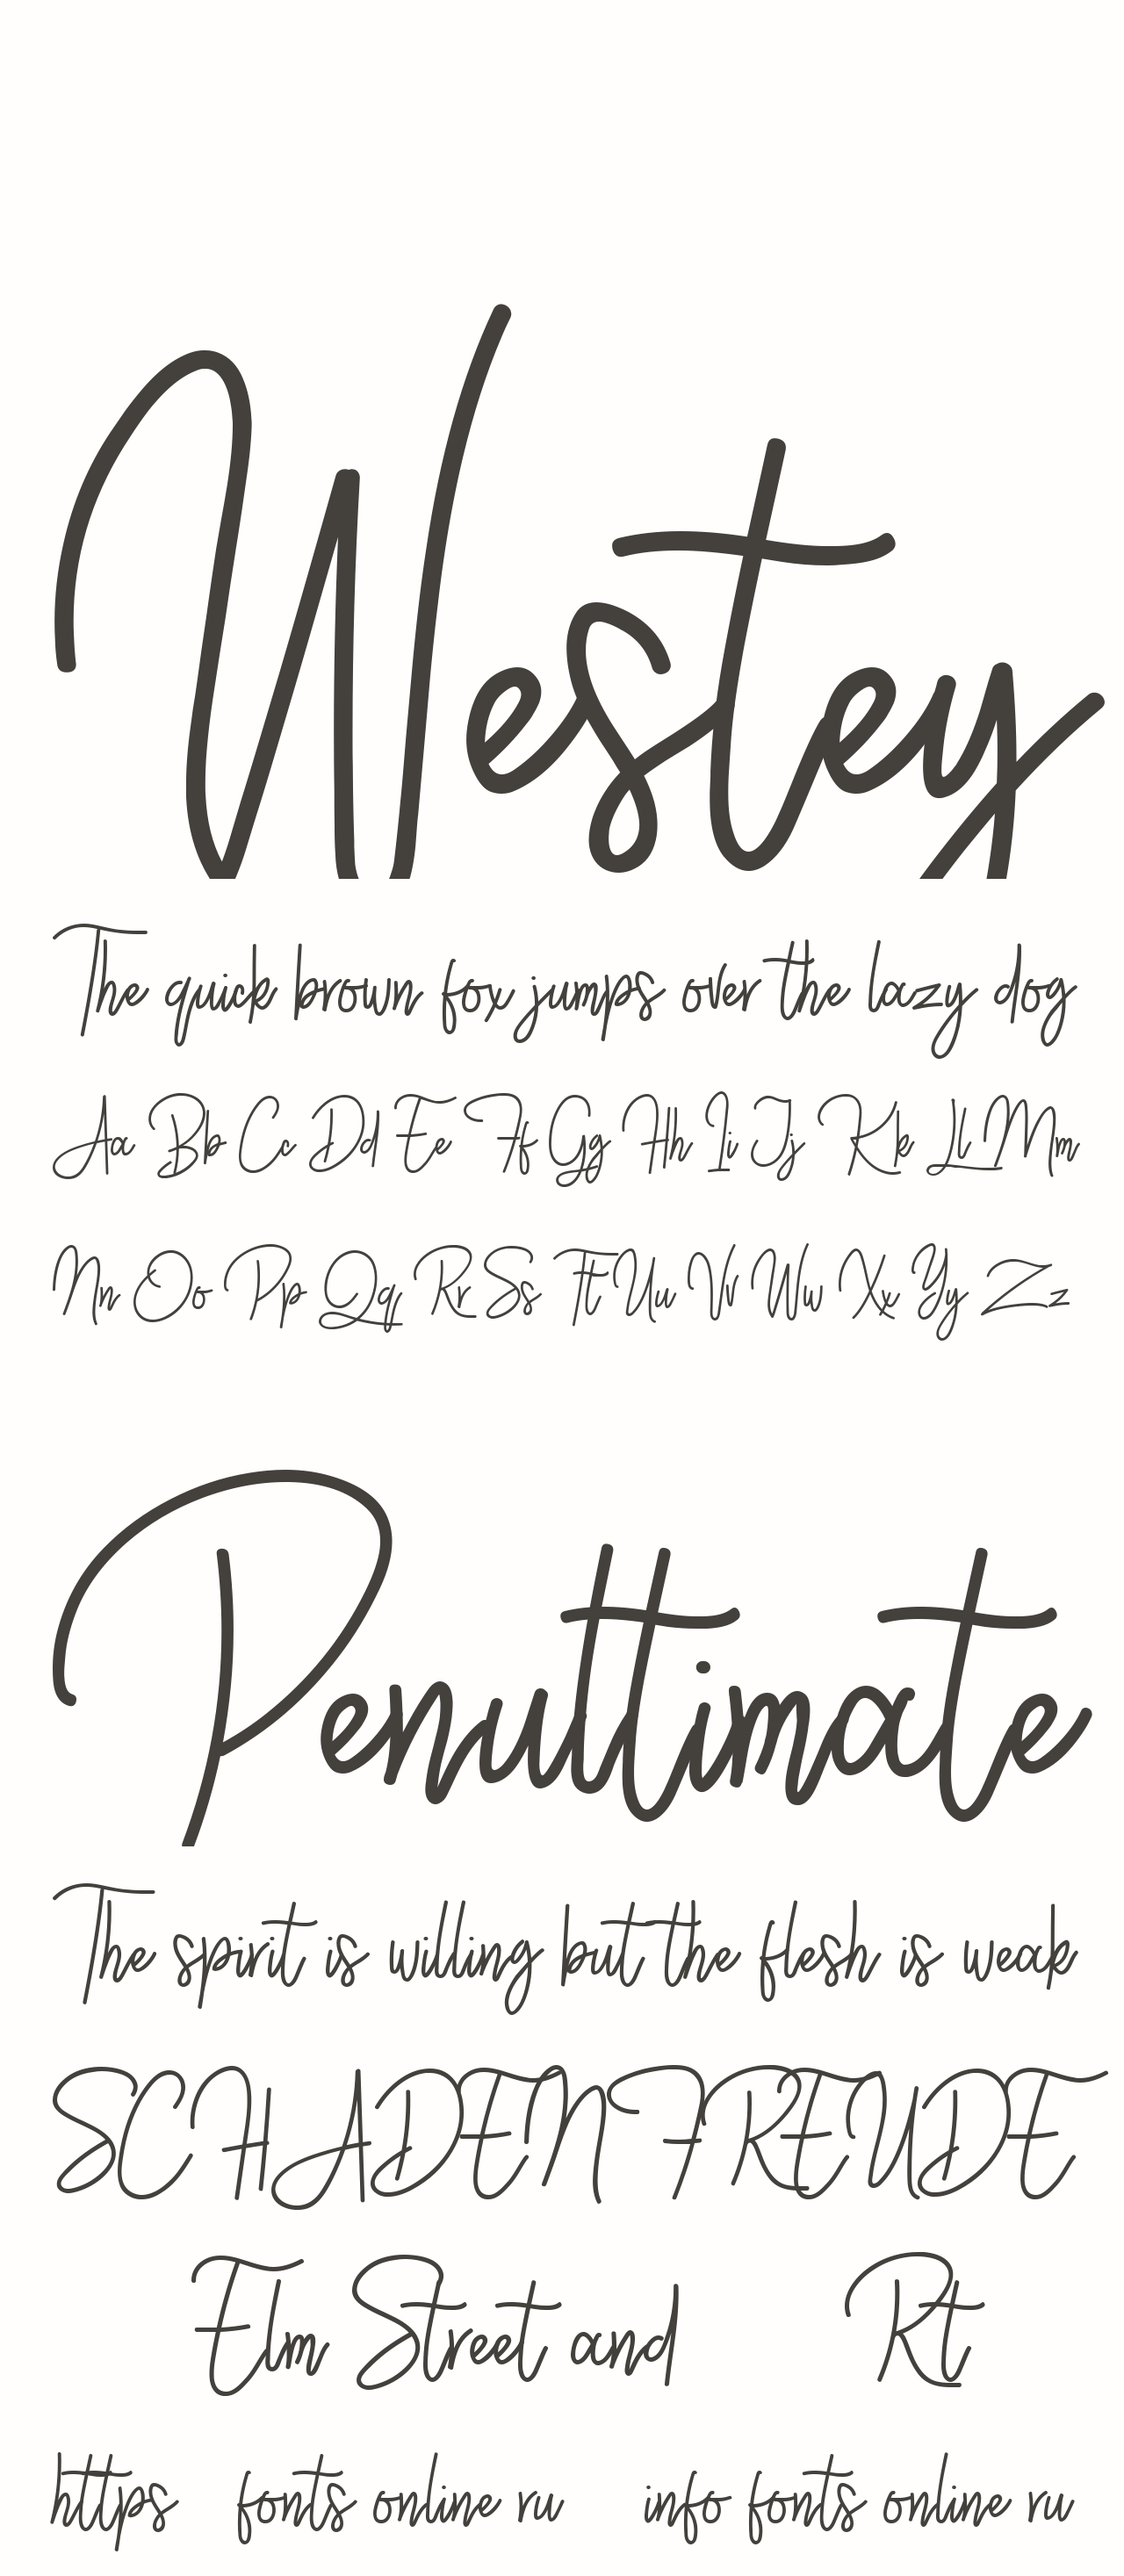 Westey
The quick brown fox jumps over the lazy dog
Aa Bb Cc Dd Ee Ff Gg Hh Ii Jj Kk Ll Mm
Nn Oo Pp Qq Rr Ss Tt Uu Vv Ww Xx Yy Zz
Penultimate
The spirit is willing but the flesh is weak
SCHADENFREUDE
Elm Street and Rt
https fonts online ru info fonts online ru